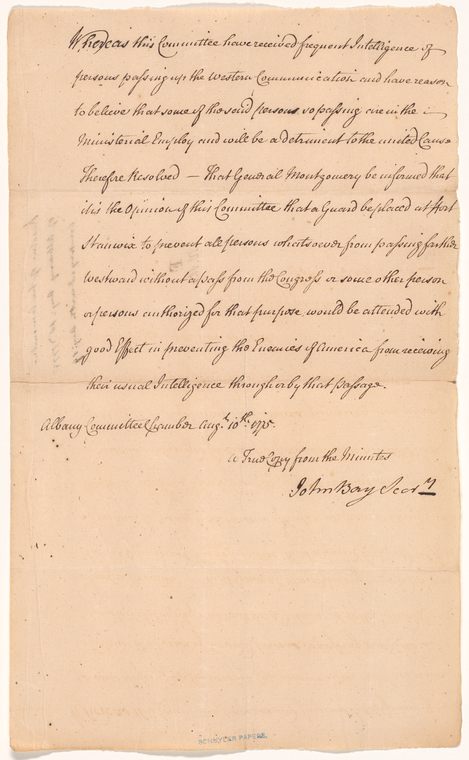 Whereas this Committee have received frequent Intelligence of
persons passing up the western Communication and have reason
to believe that some of the said persons so passing are in the
Ministerial Employ and will be a detriment to the united Cause
Therefore Resolved — That General Montgomery be informed that
it is the Opinion of this Committee that a Guard be placed at Fort
Stanwix to prevent all persons whatsoever from passing farther
westward without a pass from the Congress or some other person
or persons authorized for that purpose would be attended with
good Effect in preventing the Enemies of America from receiving
their usual Intelligence through or by that passage.
Albany Committee Chamber Augt. 10th. 1775.
a True Copy from the Minutes
John Bay Secry
SCHUYLER PAPERS.